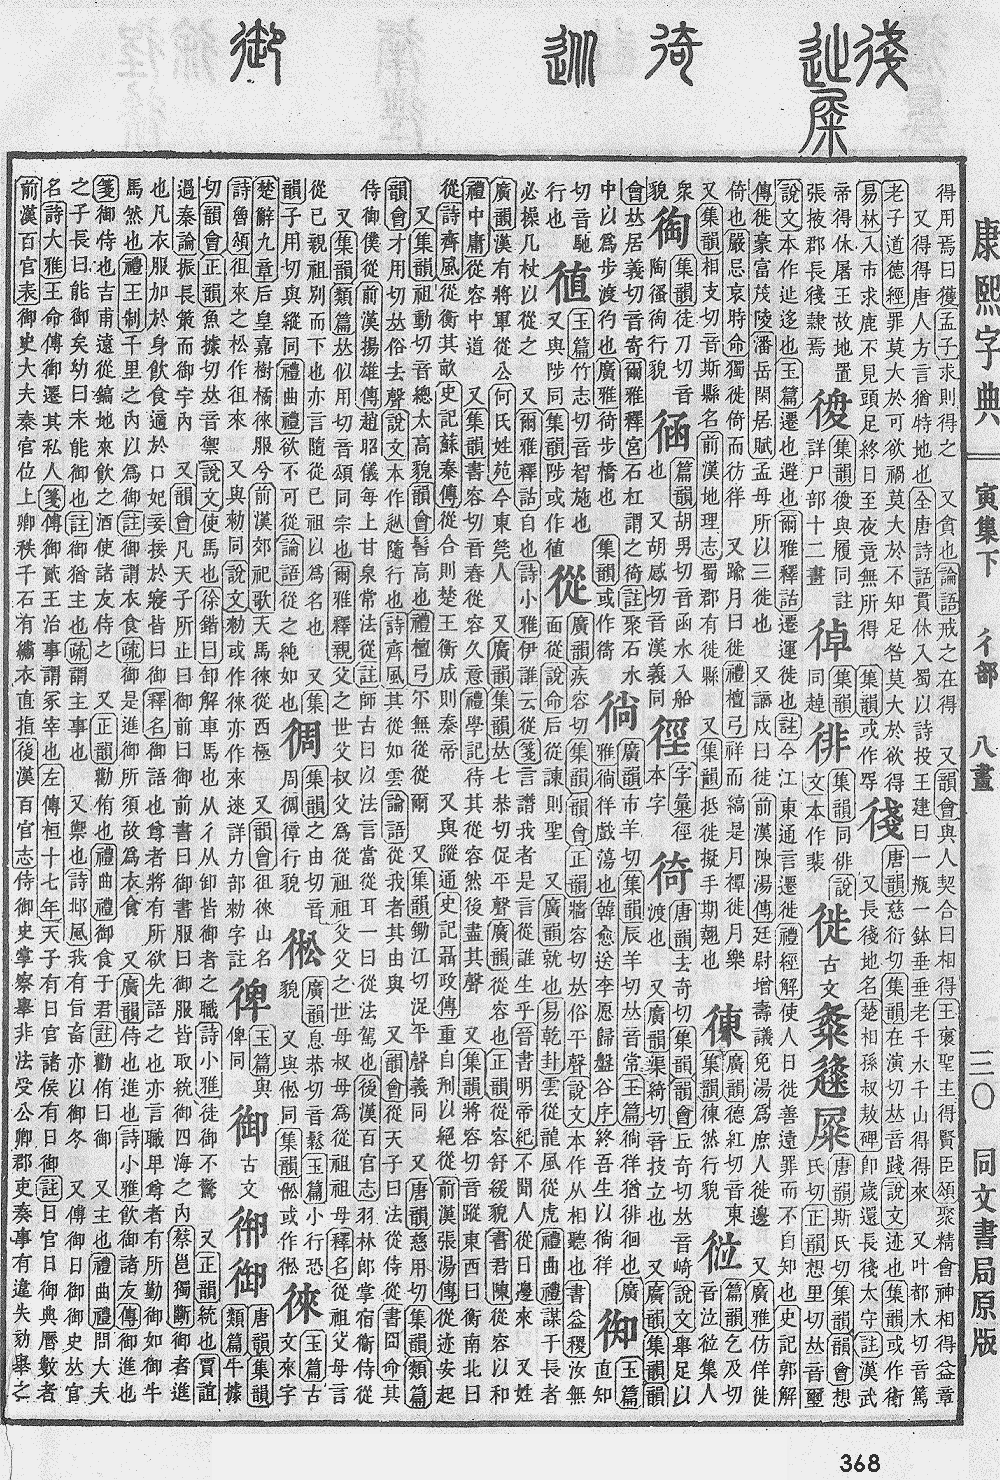 康熙字典 寅集下 彳部 八畫 三〇 同文書局原版
得用焉曰獲孟子求則得之 又貪也論語戒之在得 又韻會與人契合曰相得王褒聖主得賢臣頌聚精會神相得益章
又得得唐人方言猶特地也全唐詩話貫休入蜀以詩投王建曰一瓶一鉢垂垂老千水千山得得來 又叶都木切音篤
老子道德經罪莫大於可欲禍莫大於不知足咎莫大於欲得
易林入市求鹿不見頭足終日至夜竟無所得 集韻或作㝵
後 唐韻慈衍切集韻在演切𠀤音踐說文迹也集韻或作衜
又長後地名楚相孫叔敖碑卽歲還長後太守註漢武
帝得休屠王故地置張掖郡長後隷焉
集韻 與履同註詳尸部十二畫
徘 集韻同俳說文本作裴
徙 古文 唐韻斯氏切集韻韻會想氏切正韻想里切𠀤音璽
說文本作辿迻也玉篇遷也避也爾雅釋詁遷運徙也註今江東通言遷徙禮經解使人日徙善遠罪而不自知也史記郭解
傳徙豪富茂陵潘岳閑居賦孟母所以三徙也 又謫戍曰徙前漢陳湯傳廷尉增壽議免湯爲庶人徙邊 又廣雅仿佯徙
倚也嚴忌哀時命獨徙倚而彷徉 又踰月曰徙禮檀弓祥而縞是月禫徙月樂
又集韻相支切音斯縣名前漢地理志蜀郡有徙縣 又集韻抵徙擬手期翹也
徚 廣韻德紅切音東集韻徚然行貌
𢓡 篇韻乞及切音泣𢓡集人衆貌
𢔇 集韻徒刀切音陶徭𢔇行貌
㴠 篇韻胡男切音函水入船也 又胡感切音漢義同
徑 字彙徑本字
徛 唐韻去奇切集韻韻會丘奇切𠀤音崎說文舉足以渡也 又廣韻渠綺切音技立也 又廣韻集韻韻會𠀤居義切音寄爾雅釋宮石杠謂之徛註聚石水
中以爲步渡彴也廣雅徛步橋也 集韻或作㣟
徜 廣韻市羊切集韻辰羊切𠀤音常玉篇徜徉猶徘徊也廣雅徜徉戲蕩也韓愈送李愿歸盤谷序終吾生以徜徉
御 玉篇直知切音馳行也
徝 玉篇竹志切音智施也 又與陟同集韻陟或作徝
從 廣韻疾容切集韻韻會正韻牆容切𠀤俗平聲說文本作从相聽也書益稷汝無面從說命后從諫則聖 又廣韻就也易乾卦雲從龍風從虎禮曲禮謀于長者
必操几杖以從之 又爾雅釋詁自也詩小雅伊誰云從箋言譖我者是言從誰生乎晉書明帝紀不聞人從日邊來 又姓
廣韻漢有將軍從公何氏姓苑今東莞人 又廣韻集韻𠀤七恭切促平聲廣韻從容也正韻從容舒緩貌書君陳從容以和
禮中庸從容中道 又集韻書容切音舂從容久意禮學記待其從容然後盡其聲 又集韻將容切音蹤東西曰衡南北曰
從詩齊風從衡其畝史記蘇秦傳從合則楚王衡成則秦帝 又與蹤通史記聶政傳重自刑以絕從前漢張湯傳從迹安起
又集韻祖動切音總太高貌韻會髻高也禮檀弓爾無從從爾 又集韻鋤江切浞平聲義同 又唐韻慈用切集韻類篇
韻會才用切𠀤俗去聲說文本作䢐隨行也詩齊風其從如雲論語從我者其由與 又韻會從天子曰法從侍從書冏命其
侍御僕從前漢揚雄傳趙昭儀每上甘泉常法從註師古曰以法言當從耳一曰從法駕也後漢百官志羽林郞掌宿衞侍從
又集韻類篇𠀤似用切音頌同宗也爾雅釋親父之世父叔父爲從祖祖父父之世母叔母爲從祖祖母釋名從祖父母言
從己親祖別而下也亦言隨從己祖以爲名也 又集韻子用切與縱同禮曲禮欲不可從論語從之純如也
徟 集韻之由切音周徟徸行貌
㣝 廣韻息恭切音鬆玉篇小行恐貌 又與倯同集韻倯或作㣝
徠 玉篇古文來字楚辭九章后皇嘉樹橘徠服今前漢郊祀歌天馬徠從西極 又韻會徂徠山名詩魯頌徂來之松作徂來 又與勑同說文勑或作徠亦作來迷詳力部勑字註
𢔌 玉篇與俾同
御 古文 唐韻集韻類篇牛據切韻會正韻魚據切𠀤音禦說文使馬也徐鍇曰卸解車馬也从彳从卸皆御者之職詩小雅徒御不驚 又正韻統也賈誼
過秦論振長策而御宇內 又韻會凡天子所止曰御前曰御前書曰御書服曰御服皆取統御四海之內蔡邕獨斷御者進
也凡衣服加於身飮食適於口妃妾接於寢皆曰御釋名御語也尊者將有所欲先語之也亦言職卑尊者有所勤御如御牛
馬然也禮王制千里之內以爲御註御謂衣食疏御是進御所須故爲衣食 又廣韻侍也進也詩小雅飮御諸友傳御進也
箋御侍也吉甫遠從鎬地來飮之酒使諸友侍之 又正韻勸侑也禮曲禮御食于君註勸侑曰御 又主也禮曲禮問大夫
之子長曰能御矣幼曰未能御也註御猶主也疏謂主事也 又禦也詩邶風我有旨畜亦以御冬 又傳御曰御御史𠀤官
名詩大雅王命傅御遷其私人箋傅御貳王治事謂冢宰也左傳桓十七年天子有日官諸侯有日御註日官日御典曆數者
前漢百官表御史大夫秦官位上卿秩千石有繡衣直指後漢百官志侍御史掌察舉非法受公卿郡吏奏事有違失劾舉之
368